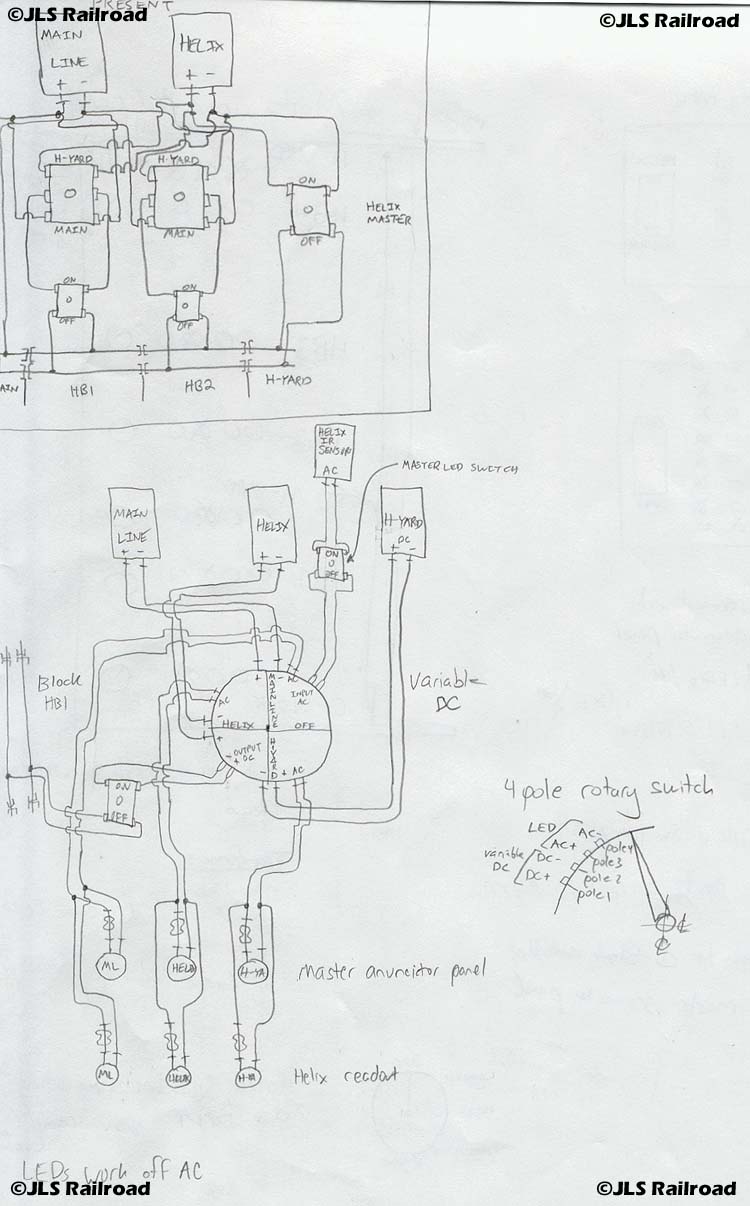 ©JLS Railroad
©JLS Railroad
PRESENT
MAIN
LINE
+ -
HELIX
+ -
H-YARD
O
MAIN
H-YARD
O
MAIN
ON
O
OFF
HELIX
MASTER
ON
O
OFF
ON
O
OFF
AIN
HB1
HB2
H-YARD
HELIX
IR
SENSORS
AC
MASTER LED SWITCH
MAIN
LINE
+ -
HELIX
+ -
ON
O
OFF
H-YARD
DC
+ -
Block
HB1
Variable
DC
+ MAINLINE - AC
INPUT
AC
AC
- HELIX
+
OFF
OUTPUT
- + DC
- H-YARD + AC
ON
O
OFF
4 pole rotary switch
LED
AC-
AC+
variable
DC
DC-
DC+
pole4
pole3
pole2
pole1
ML
HELIX
H-YA
Master anuncitor panel
ML
HELIX
H-YA
Helix readout
LEDs work off AC
©JLS Railroad
©JLS Railroad